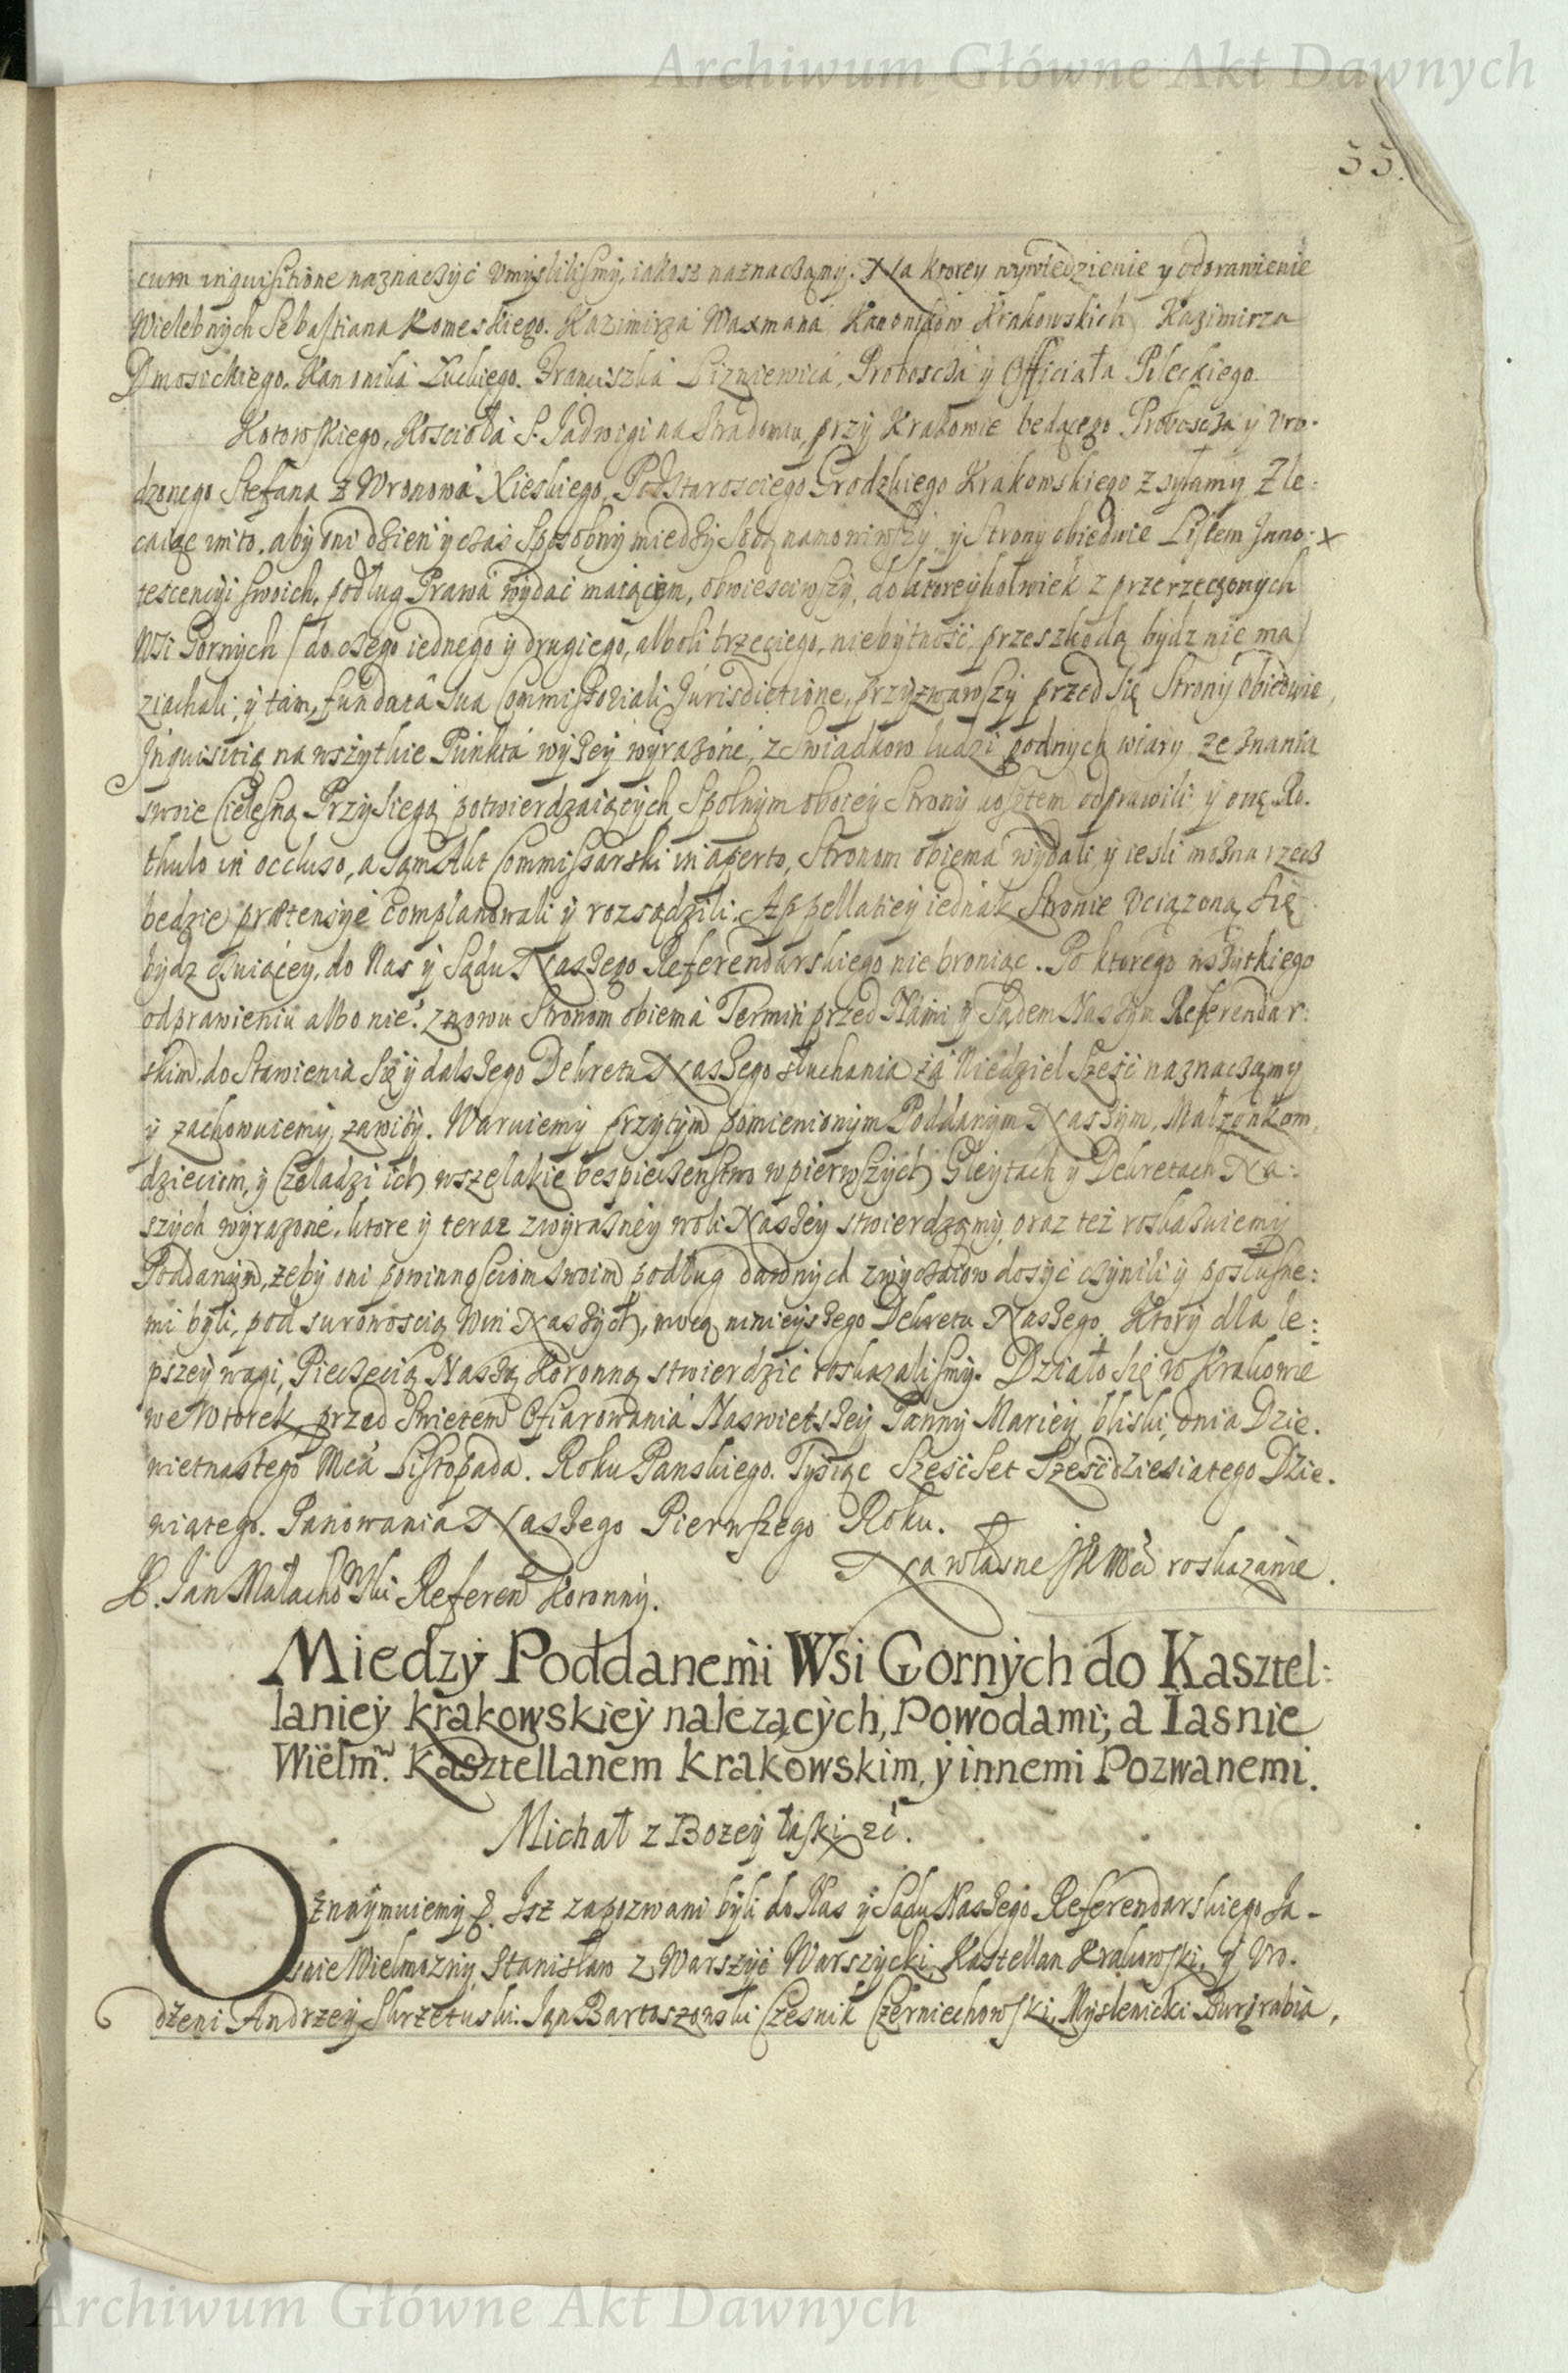 Archiwum Główne Akt Dawnych
55.
cum inquisitione naznaczyć umyslilismy, iakosz naznaczamy. Na ktorey wywiedzienie y odprawienie
Wielebnych Sebastiana Komeskiego. Kazimirza Waxmana Kanonikow Krakowskich Kazimirza
Dmosickiego. Kanonika Łuckiego. Franciszka Lizniewica, Proboscza y Officiała Pileckiego.
Kotowskiego, Koscioła S. Jadwigi na Stradomiu, przy Krakowie będącego Proboscza y Uro-
dzonego Stefana z Wronowa Xieskiego, Podstarosciego Grodzkiego Krakowskiego zsyłamy Zle:
caiąc im to, aby oni dzień y czas sposobny miedzy sobą namowiwszy, y Strony obiedwie Listem Inno:
tescencyi swoich, podług Prawa wydać maiącym, obwiesciwszy, do ktoreykolwiek z przerzeczonych
Wsi Gornych (do czego iednego y drugiego, alboli trzeciego, niebytność przeszkodą bydz nie ma)
ziachali, y tam, fundata sua Commissoriali Jurisdictione, przyzwawszy przed się Strony obiedwie,
Inquisitią na wszytkie Punkta wyżey wyrażone, z Swiadkow ludzi godnych wiary zeznania
swoie Cielesną Przysięgą potwierdzaiących, Spolnym oboiey Strony kosztem odprawili y onę Ro-
thulo in occluso, a sąm Akt Commissarski in aperto, Stronom obiema wydali, y iesli można rzecz
bedzie prætensye complanowali y rozsądzili. Appellatiey iednak Stronie Uciązoną się
bydz czuiącey, do Nas y Sądu Naszego Referendarskiego nie broniąc. Po ktorego wszytkiego
odprawieniu albo nie. znowu Stronom obiema Termin przed Nami y Sądem Naszym Referendar:
skim, do Stawienia się y dalszego Dekretu Naszego słuchania za Niedziel sześć naznaczamy
y zachowuiemy, zawity. Waruiemy przytym pomienionym Poddanym Naszym, Małzonkom,
dzieciom, y Czeladzi ich wszelakie bespieczenstwo w pierwszych Gleytach y Dekretach Na:
szych wyrazone, ktore y teraz z wyrazney woli Naszey stwierdzamy, oraz też roskazuiemy
Poddanym, żeby oni powinnosciom swoim podług dawnych zwyczaiow dosyć czynili y posłusne:
mi byli, pod surowoscią Win Naszych, mocą ninieyszego Dekretu Naszego. Ktory dla le:
pszey wagi, Pieczecią Naszą Koronną stwierdzić roskazalismy. Działo się w Krakowie
we Wtorek przed Swietem Ofiarowania Naswietszey Panny Mariey bliski, dnia Dzie-
wietnastego Mca Listopada. Roku Panskiego. Tysiąc Sześć Set Sześcdziesiatego Dzie-
wiątego. Panowania Naszego Pierwszego Roku.
Na własne JKMci roskazanie.
X. Jan Małachowski Referen Koronny.
Miedzy Poddanemi Wsi Gornych do Kasztel:
laniey krakowskiey nalezących, Powodami; a Iasnie
Wielm. Kasztellanem krakowskim, y innemi Pozwanemi.
Michał z Bozey łaski zc.
Oznaymuiemy p. Isz zapozwani byli do Nas y Sądu Naszego Referendarskiego Ja-
snie Wielmozny Stanisław z Warszyc Warszycki, Kastellan Krakowski, y Uro-
dzeni Andrzey Skrzetuski. Jan Bartoszowski Czesnik Czerniechowski, Myslenicki Burgrabia,
Archiwum Główne Akt Dawnych